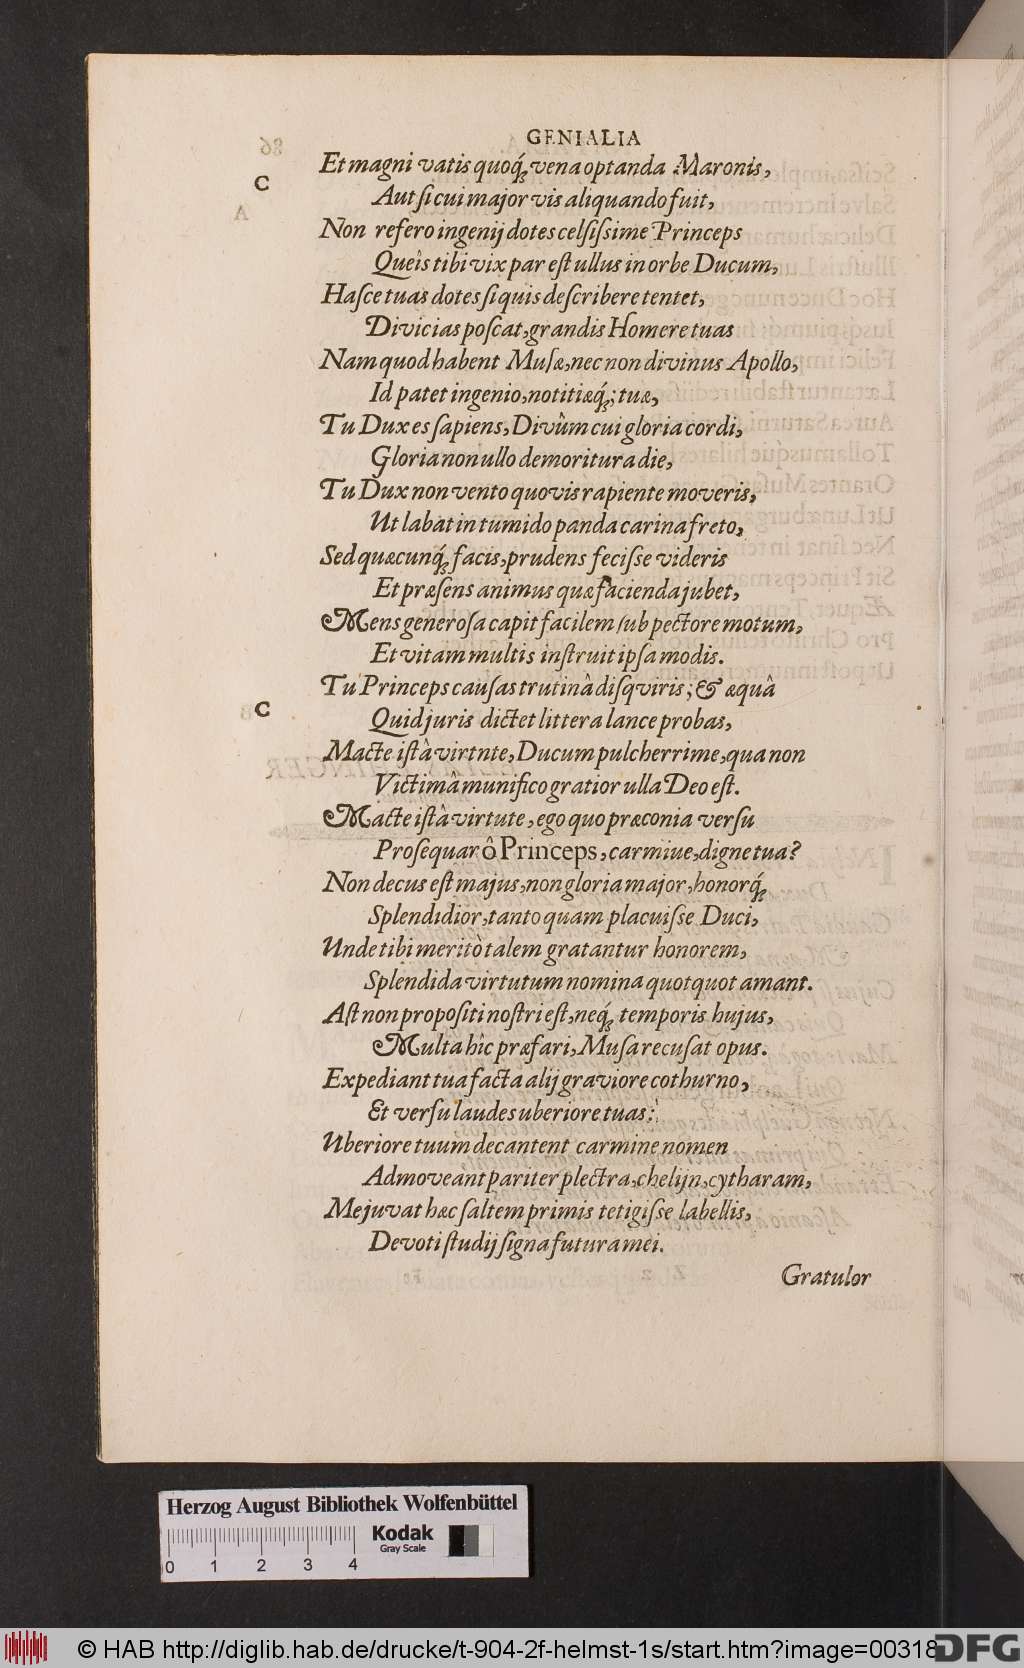 GENIALIA
Et magni vatis quoq́; vena optanda Maronis,
C
Aut si cui major vis aliquando fuit,
Non refero ingenij dotes celsissime Princeps
Queîs tibi vix par est ullus in orbe Ducum,
Hasce tuas dotes si quis describere tentet,
Divicias poscat, grandis Homere tuas
Nam quod habent Musæ, nec non divinus Apollo,
Id patet ingenio, notitiæq́; tuæ,
Tu Dux es sapiens, Divûm cui gloria cordi,
Gloria non ullo demoritura die,
Tu Dux non vento quovis rapiente moveris,
Ut labat in tumido panda carina freto,
Sed quæcunq́; facis, prudens fecisse videris
Et præsens animus quæ facienda jubet,
Mens generosa capit facilem sub pectore motum,
Et vitam multis instruit ipsa modis.
Tu Princeps causas trutinâ disqviris; & æquâ
C
Quid juris dictet littera lance probas,
Macte istâ virtnte, Ducum pulcherrime, qua non
Victimâ munifico gratior ulla Deo est.
Macte istâ virtute, ego quo præconia versu
Prosequar ô Princeps, carmiue, digne tua?
Non decus est majus, non gloria major, honorq́;
Splendidior, tanto quam placuisse Duci,
Unde tibi meritò talem gratantur honorem,
Splendida virtutum nomina quotquot amant.
Ast non propositi nostri est, neq́; temporis hujus,
Multa hîc præfari, Musa recusat opus.
Expediant tua facta alij graviore cothurno,
Et versu laudes uberiore tuas:
Uberiore tuum decantent carmine nomen
Admoveant pariter plectra, chelijn, cytharam,
Me juvat hæc saltem primis tetigisse labellis,
Devoti studij signa futura mei.
Gratulor
Herzog August Bibliothek Wolfenbüttel
Kodak
Gray Scale
0 1 2 3 4
© HAB http://diglib.hab.de/drucke/t-904-2f-helmst-1s/start.htm?image=00318
DFG